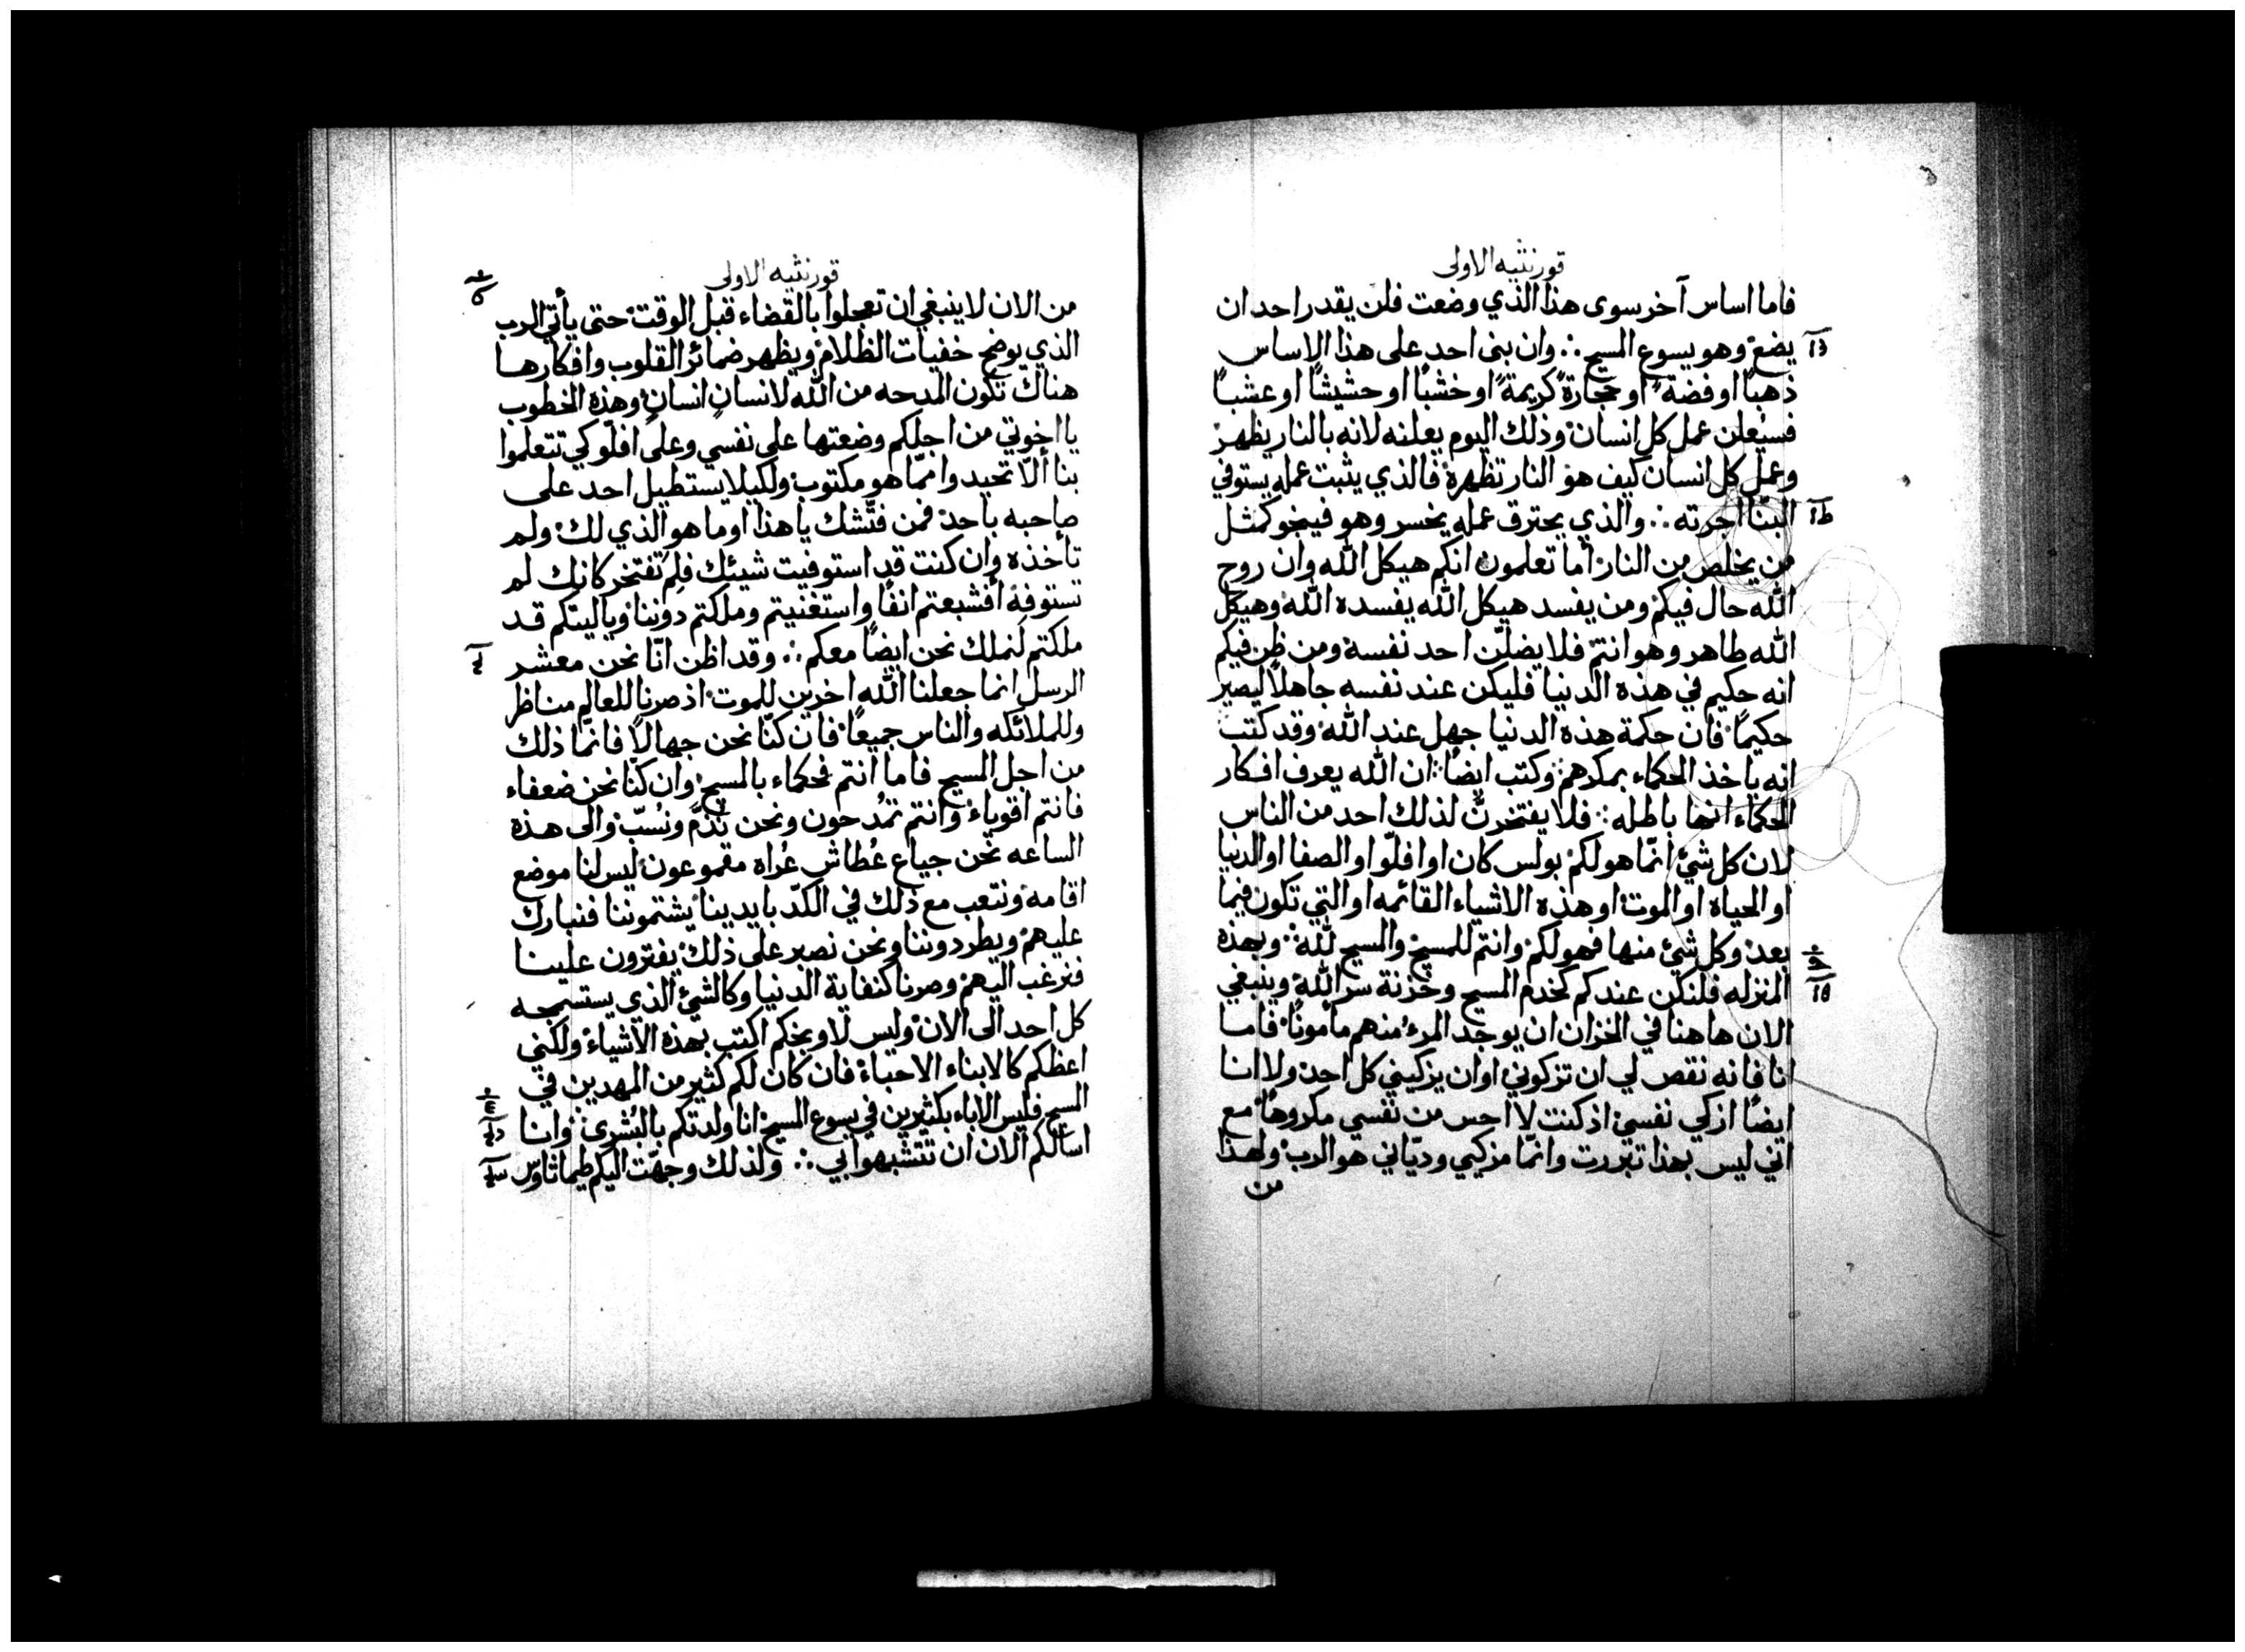 قورنثيه الاولى
فاما اساس آخر سوى هذا الذي وضعت فلن يقدر احد ان
يضع وهو يسوع المسيح ∴ وان بنى احد على هذا الاساس
ذهبًا او فضة او حجارة كريمة او خشبًا او حشيشًا او عشبًا
فسيُعلن عمل كل انسان وذلك اليوم يعلنه لانه بالنار يظهر
وعمل كل انسان كيف هو النار تظهره فالذي يثبت عمله يستوفي
البنّا اجرته ∴ والذي يحترق عمله يخسر وهو فينجو كمثل
من يخلص من النار أما تعلمون انكم هيكل الله وان روح
الله حال فيكم ومن يفسد هيكل الله يفسده الله وهيكل
الله طاهر وهو انتم فلا يضلّن احد نفسه ومن ظن فيكم
انه حكيم في هذه الدنيا فليكن عند نفسه جاهلًا ليصير
حكيمًا فان حكمة هذه الدنيا جهل عند الله وقد كتب
انه ياخذ الحكماء بمكرهم وكتب ايضًا ان الله يعرف افكار
الحكماء انها باطله فلا يفتخرنّ لذلك احد من الناس
لان كل شئ انّما هو لكم بولس كان او افلّوا والصفا او الدنيا
او الحياه او الموت او هذه الاشياء القائمه او التي تكون فيما
بعد وكل شئ منها فهو لكم وانتم للمسيح والمسيح لله ∴ وبهذه
المنزله فلنكن عندكم كخدم المسيح وخزنة سر الله وينبغي
الان هاهنا في الخزان ان يوجد المرء منهم مامونًا فاما
انا فانه نقص لي ان تزكوني او ان يزكيني كل احد ولا انا
ايضًا ازكي نفسي اذ كنت لا احس من نفسي مكروهًا مع
اني ليس بهذا تبررت وانّما مزكيي وديّاني هو الرب ولهذا
من
قورنثيه الاولى
من الان لا ينبغي ان تعجلوا بالقضاء قبل الوقت حتى يأتي الرب
الذي يوضح خفيات الظلام ويظهر ضمائر القلوب وافكارها
هناك تكون المدحه من الله لانسانٍ انسانٍ وهذه الخطوب
يا اخوتي من اجلكم وضعتها على نفسي وعلى افلّو كي تتعلموا
بنا ألّا تحيدوا ممّا هو مكتوب ولكيلا يستطيل احد على
صاحبه باحد فمن فتّشك يا هذا او ما هو الذي لك ولم
تأخذه وان كنت قد استوفيت شيئك فلِم تفتخر كانك لم
تستوفه أفشبعتم انفًا واستغنيتم وملكتم دوننا وياليتكم قد
ملكتم لنملك نحن ايضًا معكم ∴ وقد اظن انّا نحن معشر
الرسل انما جعلنا الله اخرين للموت اذ صرنا للعالم مناظر
وللملائكه والناس جميعًا فان كنّا نحن جهالًا فانّما ذلك
من اجل المسيح فاما انتم فحكماء بالمسيح وان كنا نحن ضعفاء
فانتم اقوياء وانتم تمُدحون ونحن نُذمّ ونُسبّ والى هذه
الساعه نحن جياع عُطاش عُراه مقموعون ليس لنا موضع
اقامه ونتعب مع ذلك في الكدّ بايدينا يشتموننا فنبارك
عليهم ويطردوننا ونحن نصبر على ذلك يفترون علينا
فنرغب اليهم وصرنا كنفاية الدنيا وكالشئ الذي يستسمجه
كل احد الى الان وليس لاوبخكم اكتب بهذه الاشياء ولكني
اعظكم كالابناء الاحباء فان كان لكم كثير من المهدين في
المسيح فليس الاباء بكثيرين في يسوع المسيح انا ولدتكم بالبُشرى وانا
اسالكم الان ان تتشبهوا بي ∴ ولذلك وجهّت اليكم طيماثاوس